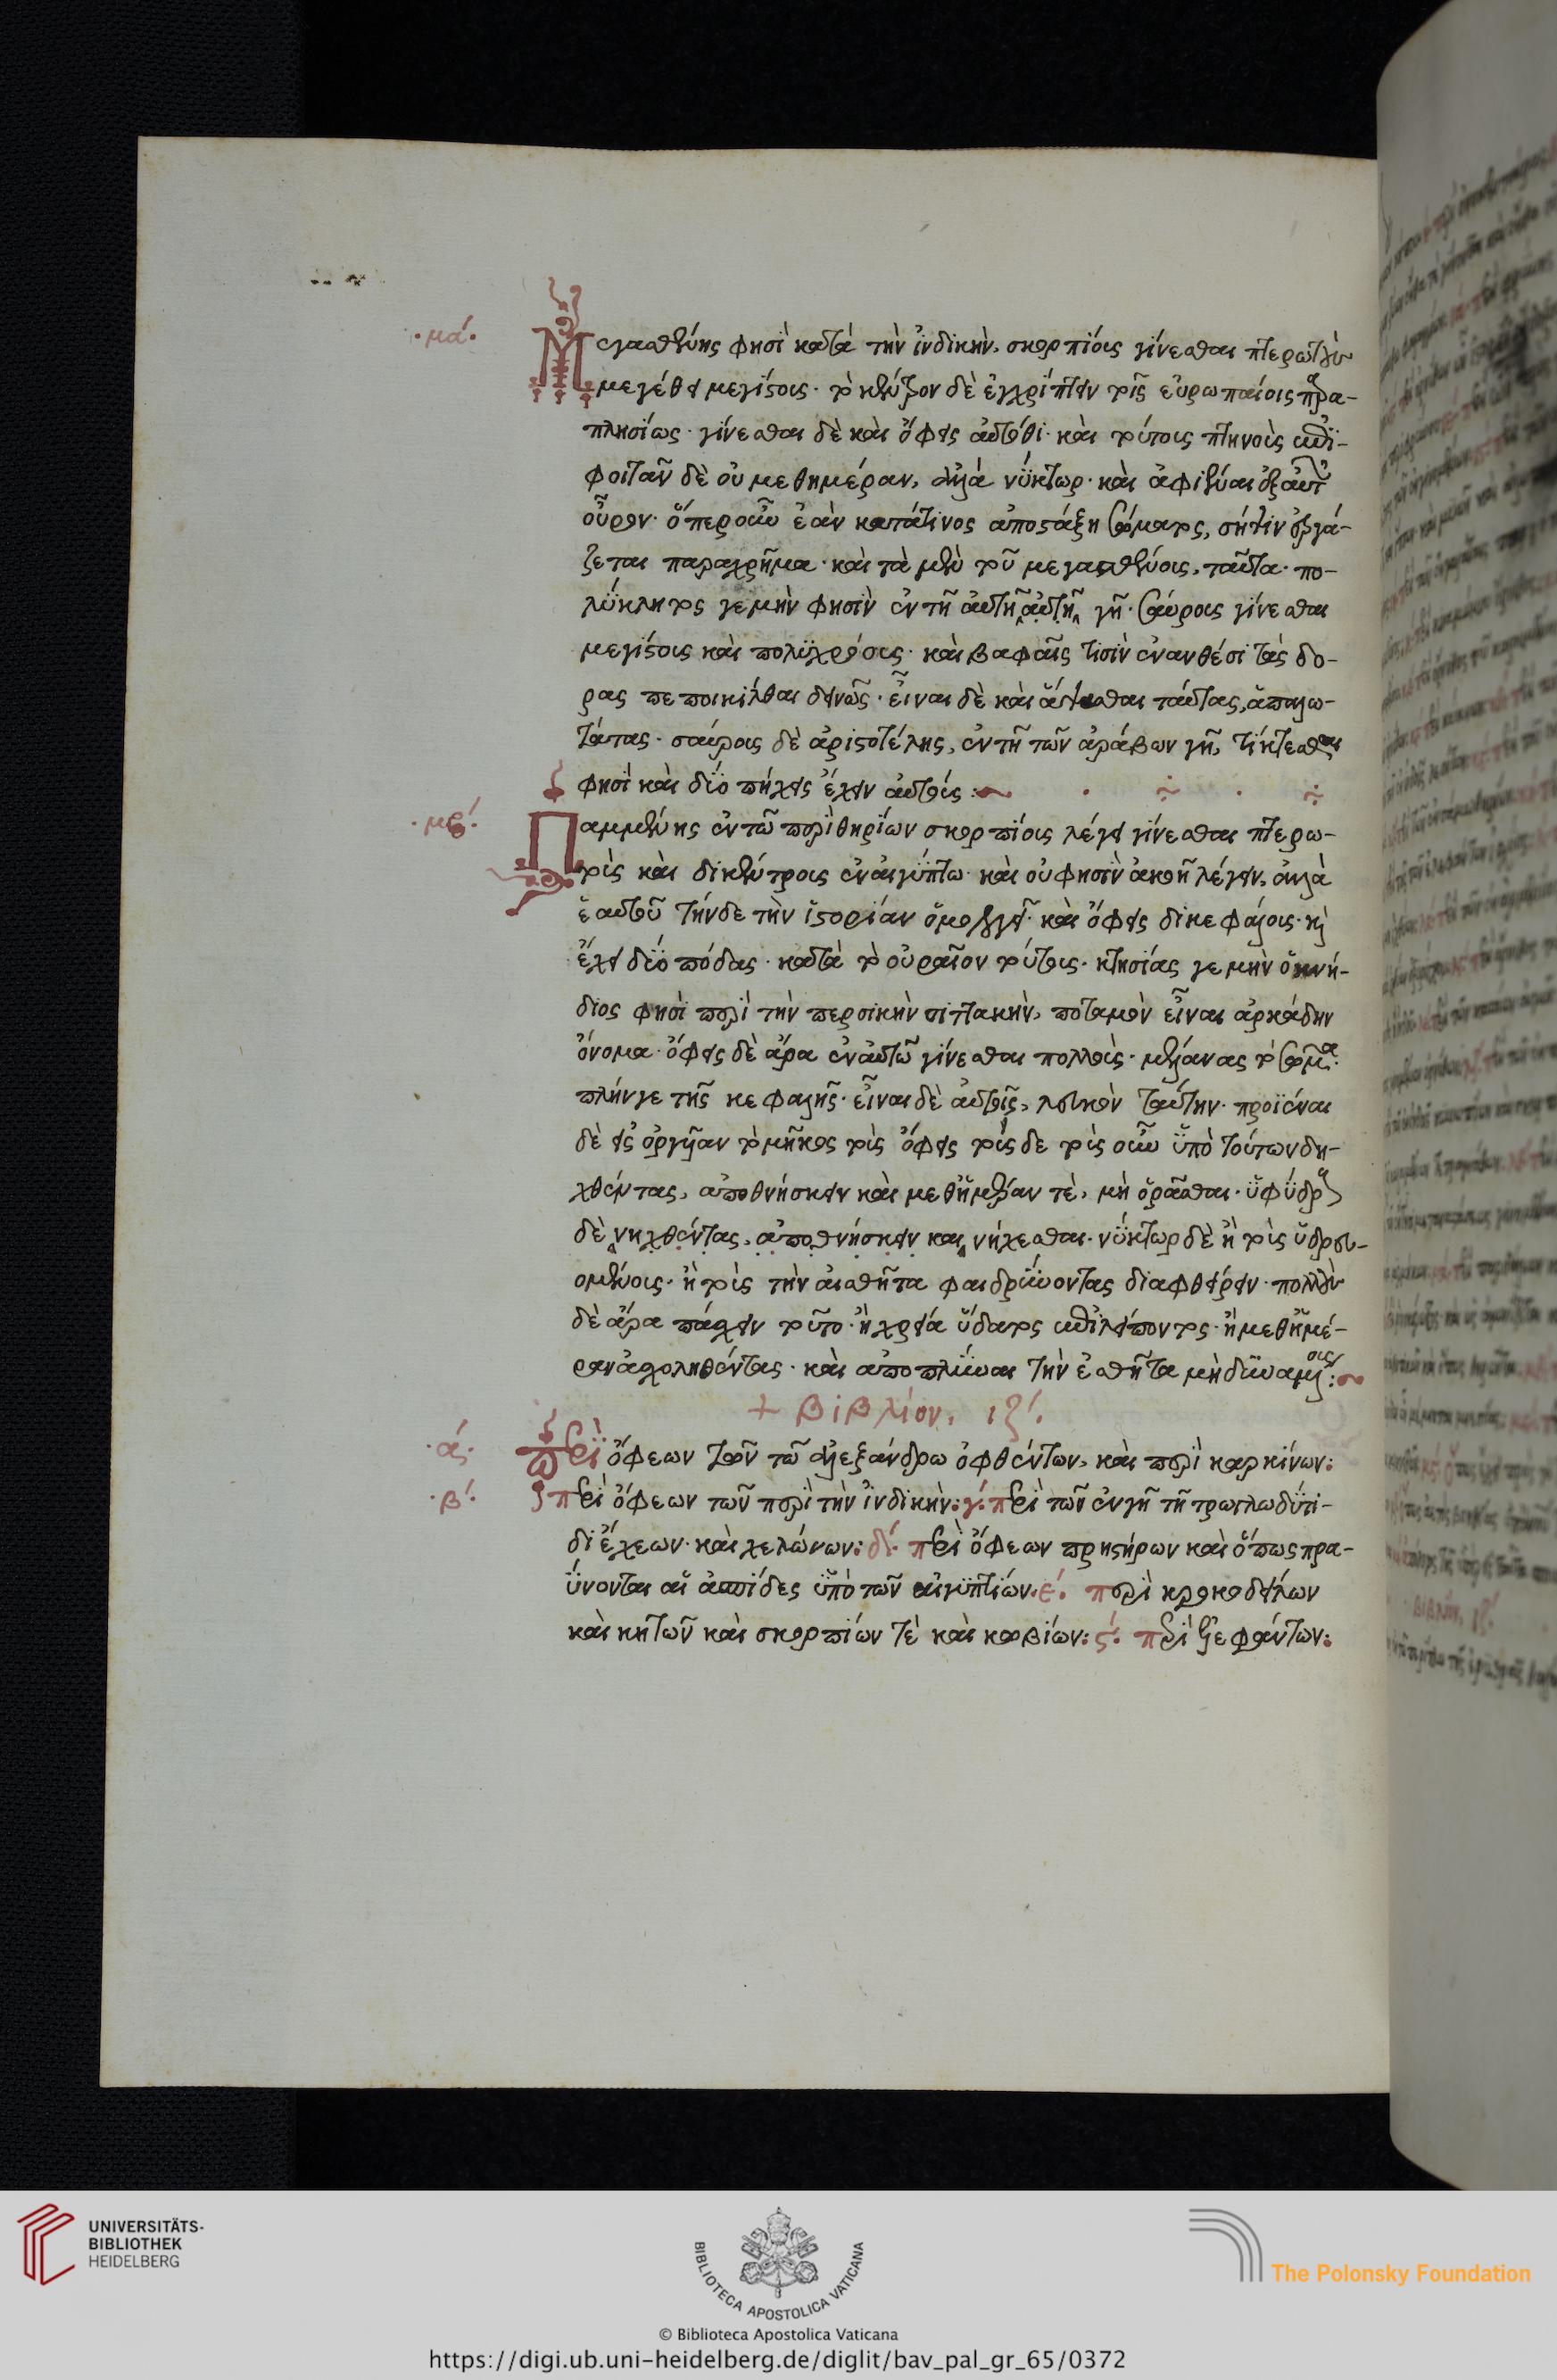 ·μα΄· Μεγασθένης φησὶ κατὰ τὴν ἰνδικὴν, σκορπίους γίνεσθαι πτερωτοὺς
μεγέθει μεγίστους· τὸ κέντρον δὲ ἐγχρίπτειν τοῖς εὐρωπαίοις παρα-
πλησίως· γίνεσθαι δὲ καὶ ὄφεις αὐτόθι· καὶ τούτους πτηνοὺς ἐπι-
φοιτᾶν δὲ οὐ μεθημέραν, ἀλλὰ νύκτωρ· καὶ ἀφιέναι ἐξ αὑτῶν
οὖρον· ὅπερ οὖν ἐὰν κατάτινος ἀποστάξη σώματος, σῆψιν ἐργά-
ζεται παραχρῆμα· καὶ τὰ μὲν τοῦ μεγασθένους, ταῦτα· πο-
λύκλητος γεμὴν φησὶν ἐν τῆ αὐτῆ αὐτῆ γῆ· σαύρους γίνεσθαι
μεγίστους καὶ πολυχρόους· καὶ βαφαῖς τισὶν εὐανθέσι τὰς δο-
ρας πεποικίλθαι δεινῶς· εἶναι δὲ καὶ ἅψασθαι ταύτας, ἁπαλω-
τάτας· σαύρους δὲ ἀριστοτέλης, ἐν τῆ τῶν ἀράβων γῆ, τίκτεσθαι
φησὶ καὶ δύο πήχεις ἔχειν αὐτούς :~
·μβ΄· Παμμένης ἐν τῶ περὶ θηρίων σκορπίους λέγει γίνεσθαι πτερω-
τοὺς καὶ δικέντρους ἐν αἰγύπτω· καὶ οὐ φησὶν ἀκοῆ λέγειν, ἀλλὰ
ἑαυτοῦ τήνδε τὴν ἱστορίαν ὁμολογεῖ· καὶ ὄφεις δικεφάλους· καὶ
ἔχει δύο πόδας· κατὰ τὸ οὐραῖον τούτους· κτησίας γεμὴν ὁ κνί-
διος φησὶ περὶ τὴν περσικὴν σιττακὴν, ποταμὸν εἶναι ἀρκάδην
ὄνομα· ὄφεις δὲ ἄρα ἐν αὐτῶ γίνεσθαι πολλοὺς· μέλανας τὸ σῶμα·
πλήνγε τῆς κεφαλῆς· εἶναι δὲ αὐτοῖς, λευκὸν ταύτην· προϊέναι
δὲ εἰς ὀργυὰν τὸ μῆκος τοὺς ὄφεις τούς δε τοὺς οὖν ὑπὸ τούτων δη-
χθέντας, ἀποθνήσκειν καὶ μεθἡμέραν τὲ, μὴ ὁρᾶσθαι· ὑφύδρους
δὲ νηχθέντας, ἀποθνήσκειν καὶ νήχεσθαι· νύκτωρ δὲ ἢ τοὺς ὑδρευ-
ομένους· ἢ τοὺς τὴν ἐσθῆτα φαιδρύνοντας διαφθείρειν· πολλοὺς
δὲ ἄρα πάσχειν τοῦτο· ἢ χρεία ὕδατος ἐπιλείποντος· ἢ μεθἡμέ-
ραν ἀσχοληθέντας· καὶ ἀποπλῦναι τὴν ἐσθῆτα μὴ δυναμένους :~
+ βιβλίον, ιζ΄.
·α΄· Περὶ ὄφεων τῶν τῶ ἀλεξάνδρω ὀφθέντων, καὶ περὶ καρκίνων:
·β΄· περὶ ὄφεων τῶν περὶ τὴν ἰνδικὴν: γ΄. περὶ τῶν ἐν γῆ τῆ τρωγλωδύτι-
δι ἔχεων· καὶ χελώνων: δ΄. περὶ ὄφεων πρηστήρων καὶ ὅπως πρα-
ΰνονται αἱ ἀσπίδες ὑπὸ τῶν αἰγυπτίων. ε΄. περὶ κροκοδείλων
καὶ κητῶν καὶ σκορπίων τὲ καὶ κωβίων: ς΄. περὶ ἐλεφάντων:
UNIVERSITÄTS-
BIBLIOTHEK
HEIDELBERG
BIBLIOTECA APOSTOLICA VATICANA
The Polonsky Foundation
© Biblioteca Apostolica Vaticana
https://digi.ub.uni-heidelberg.de/diglit/bav_pal_gr_65/0372